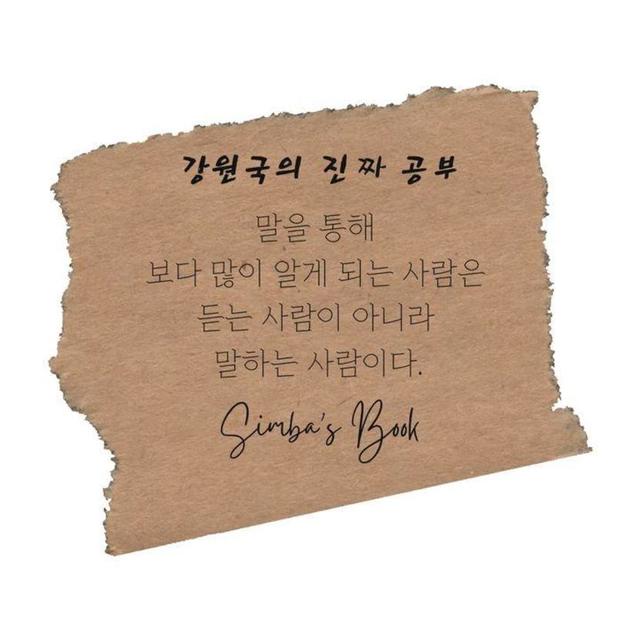 강원국의 진짜 공부
말을 통해
보다 많이 알게 되는 사람은
듣는 사람이 아니라
말하는 사람이다.
Simba's Book